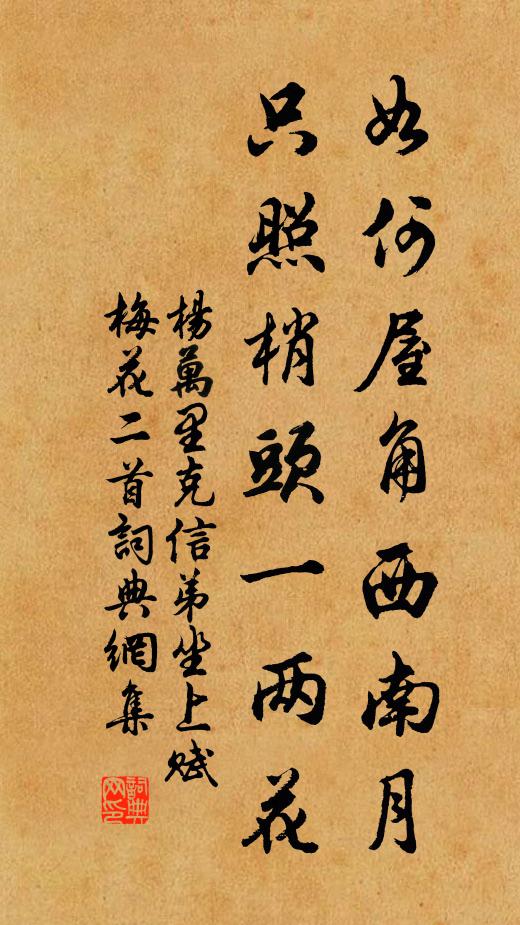 如何屋角西南月
只照梢頭一两花
楊萬里克信弟坐上賦
梅花二首詞典網集
詞典
网印